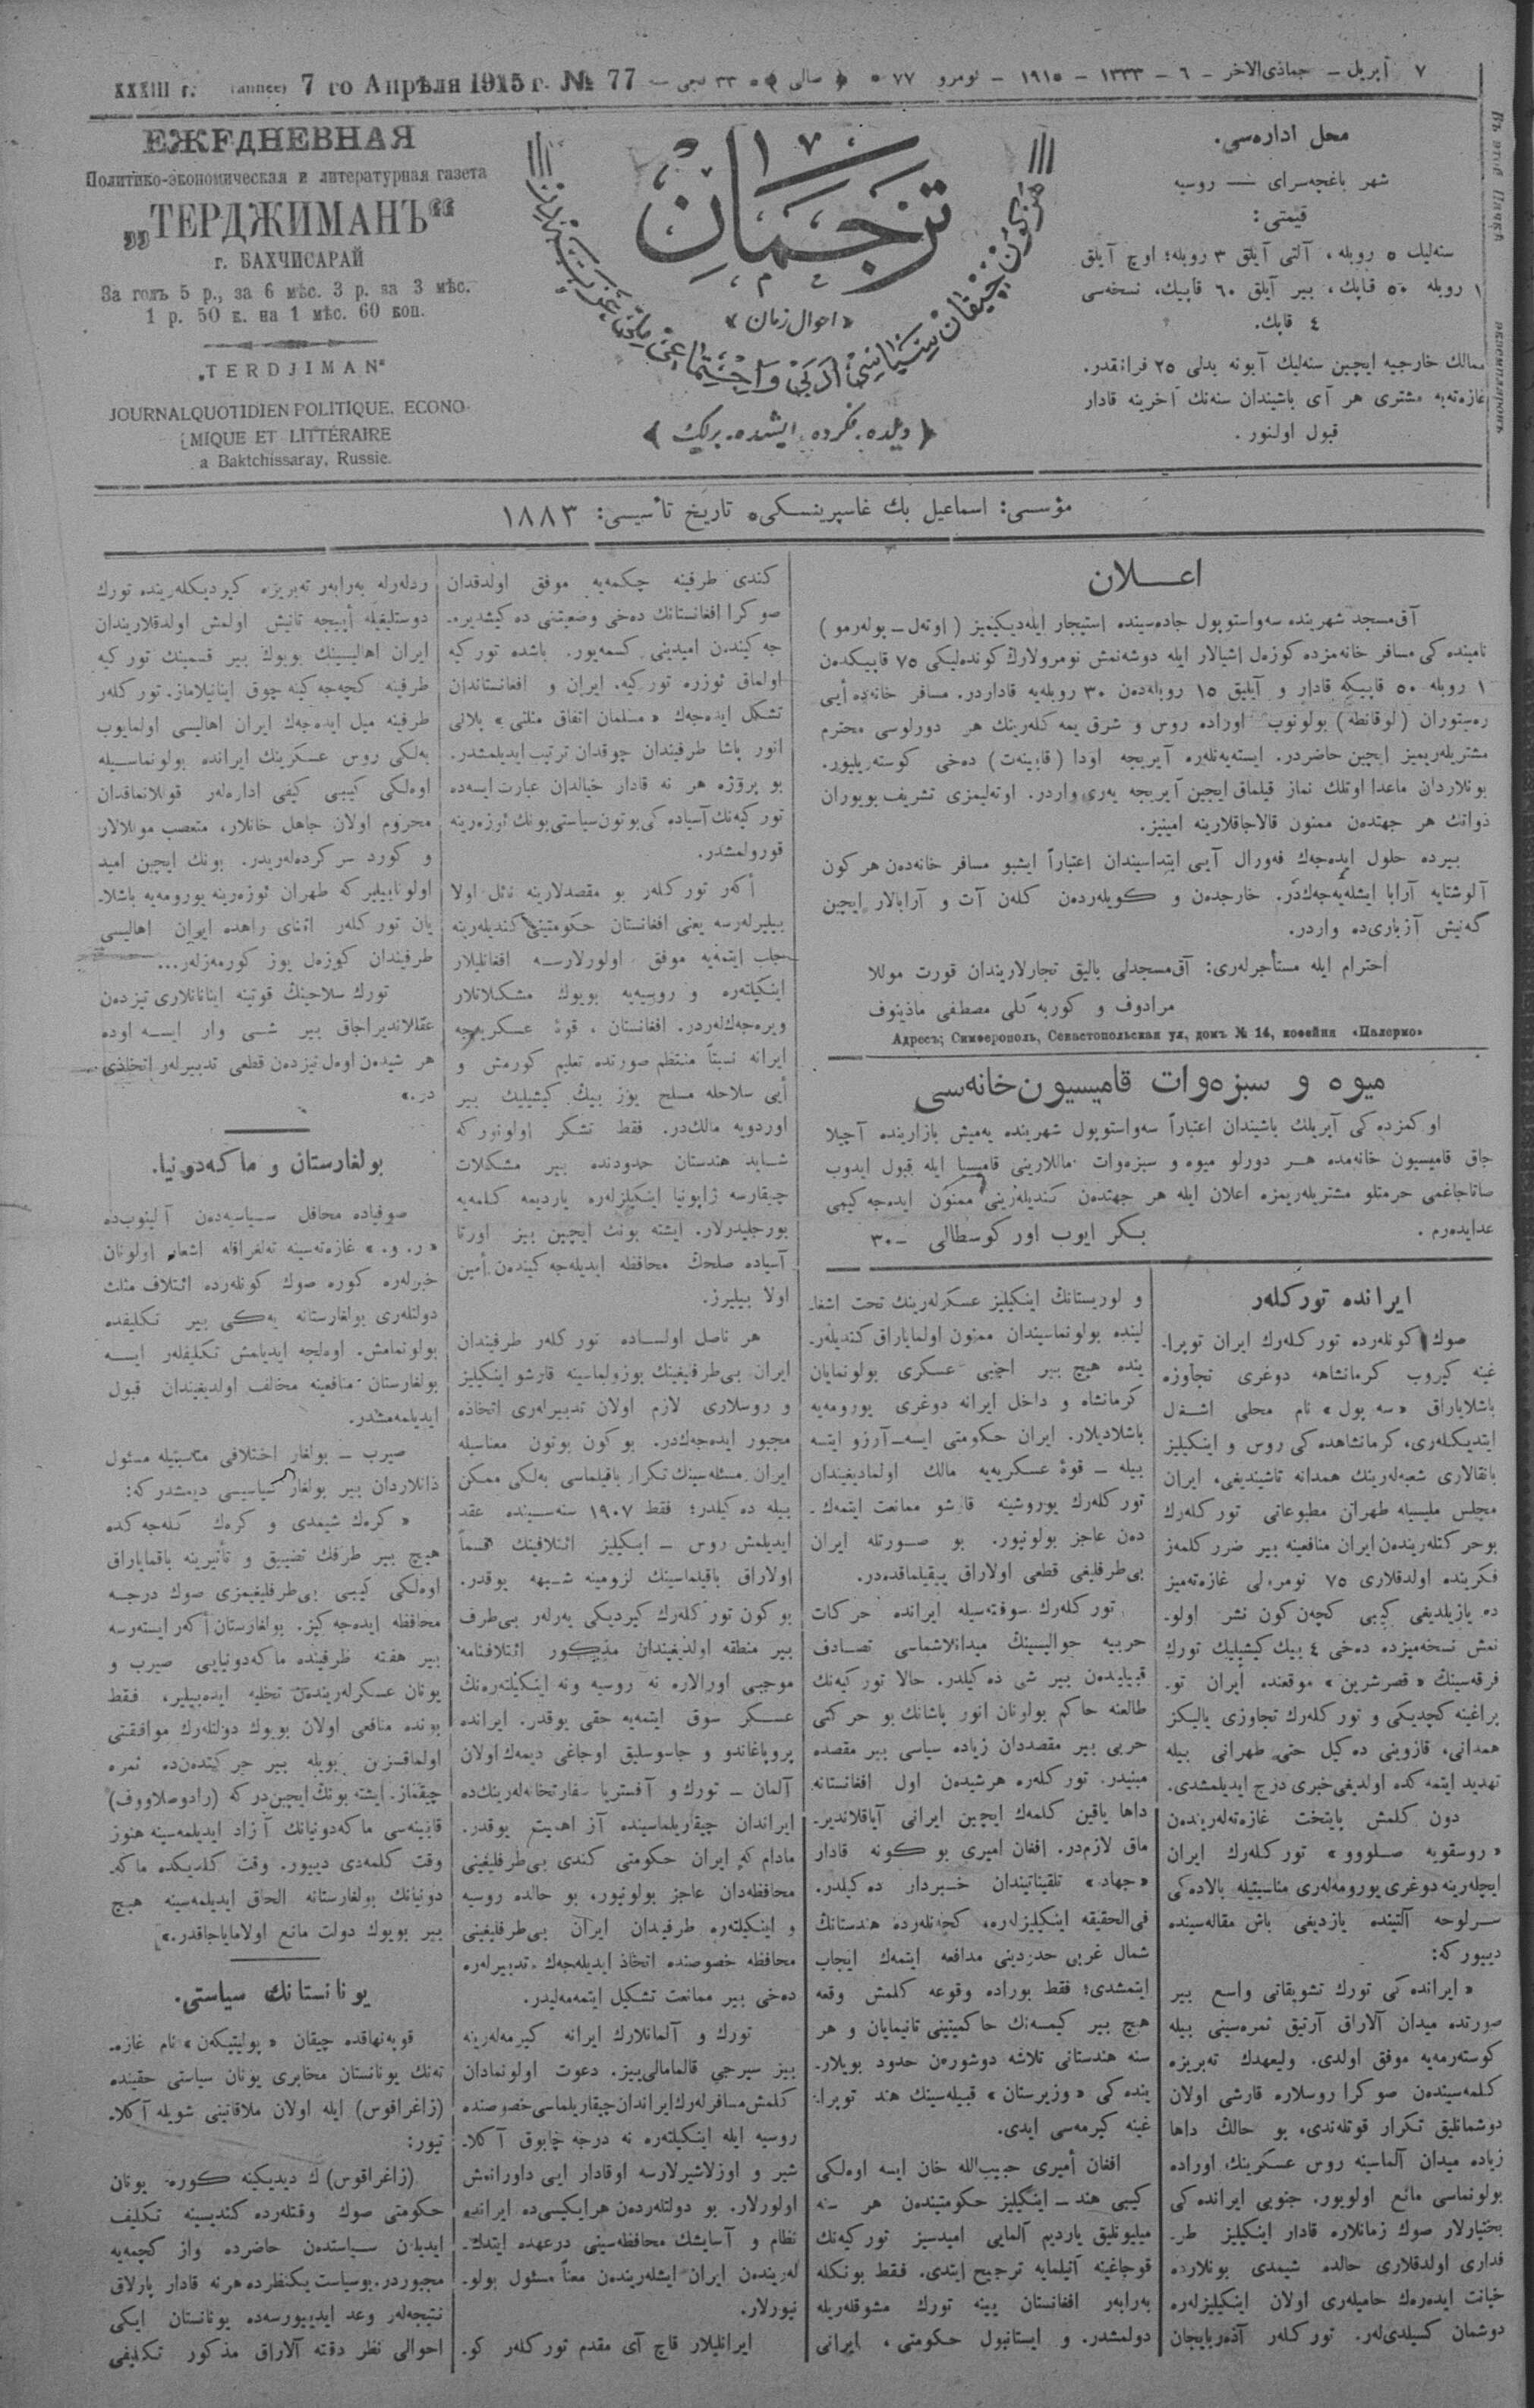 XXXIII г. (annee) 7 го Апрѣля 1915 г. № 77
٧ أپریل – جماذی‌الاخر – ٦ – ١٣٣٣ – ١٩١٥ – نومرو ٧٧ ﴿ صالی ﴾ ٣٣ نجی –
ЕЖЕДНЕВНАЯ
Политико-экономическая и литературная газета
„ТЕРДЖИМАНЪ“
г. БАХЧИСАРАЙ
За годъ 5 р., за 6 мѣс. 3 р. за 3 мѣс.
1 р. 50 к. на 1 мѣс. 60 коп.
„TERDJIMAN“
JOURNAL QUOTIDIEN POLITIQUE, ECONO-
MIQUE ET LITTÉRAIRE
a Baktchissaray, Russie.
ترجمان
١٧
« احوال زمان »
﴿ دیلده، فکرده، ایشده، برلك ﴾
محل اداره‌سی.
شهر باغچه‌سرای — روسیه
قیمتی:
سنه‌لیك ٥ روبله، آلتی آیلق ٣ روبله؛ اوچ آیلق
١ روبله ٥٠ قاپك، بیر آیلق ٦٠ قاپیك، نسخه‌سی
٤ قاپك.
ممالك خارجیه ایچین سنه‌لیك آبونه بدلی ٢٥ فرانقدر.
غازه‌ته‌یه مشتری هر آی باشیندان سنه‌نك آخرینه قادار
قبول اولنور.
مؤسسی: اسماعیل بك غاسپرینسکی، تاریخ تأسیسی: ١٨٨٣
اعـــلان
آق‌مسجد شهرینده سه‌واستوپول جاده‌سینده استیجار ایله‌دیکیمیز (اوته‌ل – پوله‌رمو)
نامینده کی مسافر خانه‌مزده کوزه‌ل اشیالار ایله دوشه‌نمش نومرولارك کونده‌لیکی ٧٥ قاپیکدن
١ روبله ٥٠ قاپیکه قادار و آیلیق ١٥ روبله‌دن ٣٠ روبله‌یه قاداردر. مسافر خانه‌ده أیی
ره‌ستوران (لوقانطه) بولونوب اوراده روس و شرق یمه کله‌رینك هر دورلوسی محترم
مشتریله‌ریمیز ایچین حاضردر. ایسته‌یه‌نله‌ره آیریجه اودا (قابینه‌ت) ده‌خی کوسته‌ریلیور.
بونلاردان ماعدا اوتلك نماز قیلماق ایچین آیریجه یه‌ری واردر. اوته‌لیمزی تشریف بویوران
ذواتك هر جهتدن ممنون قالاجاقلارینه امینیز.
بیرده حلول ایده‌جه‌ك فه‌ورال آیی ابتداسیندان اعتباراً ایشبو مسافر خانه‌دن هر کون
آلوشتایه آرابا ایشله‌یه‌جه‌کدر. خارجدن و کویله‌ردن کلن آت و آرابالار ایچین
گه‌نیش آزباری‌ده واردر.
احترام ایله مستأجرله‌ری: آق‌مسجدلی بالیق تجارلاریندان قورت موللا
مرادوف و کوربه کلی مصطفی ماذینوف
Адресъ; Симферополь, Севастопольская ул, домъ № 14, кофейня «Палермо»
میوه و سبزه‌وات قامیسیون‌خانه‌سی
اوکمزده کی آپریلك باشیندان اعتباراً سه‌واستوپول شهرینده یه‌میش بازارینده آچیلا
جاق قامیسیون خانه‌مده هـر دورلو میوه و سبزه‌وات ماللارینی قامیسیا ایله قبول ایدوب
صاتاجاغمی حرمتلو مشتریله‌ریمزه اعلان ایله هر جهتدن کندیله‌زینی ممنون ایده‌جه کیمی
عدایده‌رم. بـکر ایوب اور کوسطالی – ٣٠
ایرانده تورکله‌ر
صوك کونله‌رده تورکله‌رك ایران توپرا.
غینه کیروب کرمانشاهه دوغری تجاوزه
باشلایاراق «سه پول» نام محلی اشغال
ایتدیکله‌ری، کرمانشاهده کی روس و اینکیلیز
بانقالاری شعبه‌له‌رینك همدانه تاشیندیغی، ایران
مجلس ملیسیله طهران مطبوعاتی تورکله‌رك
بوحرکتله‌ریندن ایران منافعینه بیر ضرر کلمه‌ز
فکرینده اولدقلاری ٧٥ نومره‌لی غازه‌ته‌میز
ده یازیلدیغی کیبی کچه‌ن کون نشر اولو-
نمش نسخه‌میزده ده‌خی ٤ بیك کیشیلیك تورك
فرقه‌سینك «قصرشرین» موقعنده ایران تو-
پراغینه کچدیکی و تورکله‌رك تجاوزی یالیکز
همدانی، قازوینی ده‌کیل حتی طهرانی بیله
تهدید ایتمه کده اولدیغی خبری درج ایدیلمشدی.
دون کلمش پایتخت غازه‌ته‌له‌ریندن
«روسقویه صـلووو» تورکله‌رك ایران
ایچله‌رینه دوغری یورومه‌له‌ری مناسبتیله بالاده کی
سرلوحه آلتینده یازدیغی باش مقاله‌سینده
دییورکه:
« ایرانده کی تورك تشویقاتی واسع بیر
صورتده میدان آلاراق آرتیق ثمره‌سینی بیله
کوسته‌رمه‌یه موفق اولدی. ولیعهدك ته‌بریزه
کلمه‌سیندن صوکرا روسلاره قارشی اولان
دوشمانلیق تکرار قوتله‌ندی، بو حالك داها
زیاده میدان آلماسینه روس عسکرینك اوراده
بولونماسی مانع اولویور. جنوبی ایرانده کی
بختیارلار صوك زمانلاره قادار اینکیلیز طر-
فداری اولدقلاری حالده شیمدی بونلارده
خیانت ایده‌ره‌ك حامیله‌ری اولان اینکیلیزله‌ره
دوشمان کسیلدی‌له‌ر. تورکله‌ر آذه‌ربایجان
و لورستانك اینکیلیز عسکرله‌رینك تحت اشغا-
لینده بولونماسیندان ممنون اولمایاراق کندیله‌ر-
ینده هیچ بیر اجنبی عسکری بولونمایان
کرمانشاه و داخل ایرانه دوغری یورومه‌یه
باشلادیلار. ایران حکومتی ایسه– آرزو ایتسه
بیله – قوۀ عسکریه‌یه مالك اولمادیغیندان
تورکله‌رك یوروشینه قارشو ممانعت ایتمه‌ك-
دن عاجز بولونیور. بو صـورتله ایران
بی‌طرفلیغی قطعی اولاراق ییقیلماقده‌در.
تورکله‌رك سوقته‌سیله ایرانده حرکات
حربیه حوالیسینك میدانلاشماسی تصـادف
قبیلیدن بیر شی ده‌کیلدر. حالا تورکیه‌نك
طالعنه حاکم بولونان انور پاشانك بو حرکتی
حربی بیر مقصددان زیاده سیاسی بیر مقصده
مبنیدر. تورکله‌ره هرشیدن اول افغانستانه
داها یاقین کلمه‌ك ایچین ایرانی آیاقلاندیر-
ماق لازم‌در. افغان امیری بو کونه قادار
«جهاد» تلقیناتیندان خـبردار ده‌کیلدر.
فی‌الحقیقه اینکیلیزله‌ره، کچه‌نله‌رده هندستانك
شمال غربی حدودینی مدافعه ایتمه‌ك ایجاب
ایتمشدی؛ فقط بوراده وقوعه کلمش وقعه
هیچ بیر کیمسه‌نك حاکمیتینی تانیمایان و هر
سنه هندستانی تلاشه دوشورن حدود بویلار-
ینده کی «وزیرستان» قبیله‌سینك هند توپرا-
غینه کیرمه‌سی ایدی.
افغان أمیری حبیب‌الله خان ایسه اوه‌لکی
کیبی هند – اینکیلیز حکومتیندن هر سنه
میلیونلیق یاردیم آلمایی امیدسیز تورکیه‌نك
قوجاغینه آتیلمایه ترجیح ایتدی. فقط بونکله
به‌رابه‌ر افغانستان یینه تورك مشوقله‌ریله
دولمشدر. و ایستانبول حکومتی، ایرانی
کندی طرفینه چکمه‌یه موفق اولدقدان
صوکرا افغانستانك ده‌خی وضعیتنی ده‌کیشدیره-
جه کیندن امیدینی کسمه‌یور. باشده تورکیه
اولماق ئوزره تورکیه، ایران و افغانستاندان
تشکل ایده‌جه‌ك «مسلمان اتفاق مثلثی» پلانی
انور پاشا طرفیندان چوقدان ترتیب ایدیلمشدر.
بو پروژه هر نه قادار خیالدان عبارت ایسه‌ده
تورکیه‌نك آسیاده کی بوتون سیاستی بونك ئوزه‌رینه
قورولمشدر.
أکه‌ر تورکله‌ر بو مقصدلارینه نائل اولا
بیلیرله‌رسه یعنی افغانستان حکومتینی کندیله‌رینه
جلب ایتمه‌یه موفق اولورلارسه افغانلیلار
اینکیلته‌ره و روسیه‌یه بویوك مشکلاتلار
ویره‌جه‌ك‌له‌ردر. افغانستان، قوۀ عسکریه‌جه
ایرانه نسبتاً منتظم صورتده تعلیم کورمش و
أیی سلاحله مسلح یوز بیك کیشیلیك بیر
اوردویه مالك‌در. فقط تشکر اولونورکه
شـاید هندستان حدودنده بیر مشکلات
چیقارسه ژاپونیا اینکیلیزله‌ره یاردیمه کلمه‌یه
بورجلیدرلار. ایشته بونك ایچین بیز اورتا
آسیاده صلحك محافظه ایدیله‌جه کیندن أمین
اولا بیلیرز.
هر ناصل اولسـاده تورکله‌ر طرفیندان
ایران بی‌طرفلیغینك بوزولماسینه قارشو اینکیلیز
و روسلاری لازم اولان تدبیرله‌ری اتخاذه
مجبور ایده‌جه‌ك‌در. بو کون بوتون معناسیله
ایران مسئله‌سینك تکرار باقیلماسی به‌لکی ممکن
بیله ده‌کیلدر؛ فقط ١٩٠٧ سنه‌سـینده عقد
ایدیلمش روس – اینکیلیز ائتلافینك قسماً
اولاراق باقیلماسینك لزومینه شـبهه یوقدر.
بو کون تورکله‌رك کیردیکی یه‌رله‌ر بی‌طرف
بیر منطقه اولدیغیندان مذکور ائتلافنامه
موجبی اورالاره نه روسیه ونه اینکیلته‌ره‌نك
عسـکر سوق ایتمه‌یه حقی یوقدر. ایرانده
پروپاغاندو و جاسوسلیق اوجاغی دیمه‌ك اولان
آلمان – تورك و آفستریا سفارتخانه‌له‌رینك‌ده
ایراندان چیقاریلماسینده آز اهمیتی یوقدر.
مادام که ایران حکومتی کندی بی‌طرفلیغینی
محافظه‌دان عاجز بولونیور، بو حالده روسیه
و اینکیلته‌ره طرفیندان ایران بی‌طرفلیغینی
محافظه خصوصنده اتخاذ ایدیله‌جه‌ك تدبیرله‌ره
ده‌خی بیر ممانعت تشکیل ایتمه‌مه‌لیدر.
تورك و آلمانلارك ایرانه کیرمه‌له‌رینه
بیز سیرجی قالمامالی‌ییز. دعوت اولونمادان
کلمش مسافرله‌رك ایراندان چیقاریلماسی خصوصنده
روسیه ایله اینکیلته‌ره نه درجه چابوق آکلا-
شیر و اوزلاشیرلارسه اوقادار ایی داورانمش
اولورلار. بو دولتله‌ردن هرایکیسی‌ده ایرانده
نظام و آسایشك محافظه‌سینی درعهده ایتدك-
له‌ریندن ایران ایشله‌ریندن معناً مسئول بولو-
نیورلار.
ایرانلیلار قاچ آی مقدم تورکله‌ر کو-
ردله‌رله به‌رابه‌ر ته‌بریزه کیردیکله‌رینده تورك
دوستلیغیله أییجه تانیش اولمش اولدقلاریندان
ایران اهالیسینك بویوك بیر قسمینك تورکیه
طرفینه کچه‌جه کینه چوق اینانیلاماز. تورکله‌ر
طرفینه میل ایده‌جه‌ك ایران اهالیسی اولمایوب
به‌لکی روس عسکرینك ایرانده بولونماسـیله
اوه‌لکی کیبی کیفی اداره‌له‌ر قوللانماقدان
محروم اولان جاهل خانلار، متعصب موللالار
و کورد سرکرده‌له‌ریدر. بونك ایچین امید
اولونابیلیرکه طهران ئوزه‌رینه یورومه‌یه باشلا-
یان تورکله‌ر اثنای راهده ایران اهالیسی
طرفیندان کوزه‌ل یوز کورمه‌زله‌ر...
تورك سلاحینك قوتینه اینانانلاری تیزدن
عقللاندیراجاق بیر شـی وار ایسـه اوده
هر شیدن اوه‌ل تیزدن قطعی تدبیرله‌ر اتخاذی
در.»
بولغارستان و ماکه‌دونیا.
صوفیاده محافل سـیاسیه‌دن آلینوب‌ده
«ر. و.» غازه‌ته‌سینه تلغرافله اشعار اولونان
خبرله‌ره کوره صوك کونله‌رده ائتلاف مثلث
دولتله‌ری بولغارستانه یه‌کی بیر تکلیفده
بولونمامش. اوه‌لجه ایدیلمش تکلیفله‌ر ایسـه
بولغارستان منافعینه مخالف اولدیغیندان قبول
ایدیلمه‌مشدر.
صیرب – بولغار اختلافی مناسبتیله مسئول
ذاتلاردان بیر بولغار سیاسیسی دیمشدرکه:
« کرك شیمدی و کرك کله‌جه کده
هیچ بیر طرفك تضییق و تأثیرینه باقمایاراق
اوه‌لکی کیبی بی‌طرفلیغیمزی صوك درجـه
محافظه ایده‌جه کیز. بولغارستان أکه‌ر ایسته‌رسه
بیر هفته ظرفینده ماکه‌دونیایی صیرب و
یونان عسکرله‌ریندن تخلیه ایده‌بیلیر، فقط
بونده منافعی اولان بویوك دولتله‌رك موافقتی
اولماقـزین بویله بیر حرکتدن‌ده ثمره
چیقماز. ایشته بونك ایچین‌درکه (رادوصلاووف)
قابینه‌سی ماکه‌دونیانك آزاد ایدیلمه‌سینه هنوز
وقت کلمه‌دی دییور. وقت کلدیکده ماکه-
دونیانك بولغارستانه الحاق ایدیلمه‌سینه هیچ
بیر بویوك دولت مانع اولامایاجاقدر.»
یونانستانك سیاستی.
قوپه‌نهاقده چیقان «پولیتیکه‌ن» نام غازه-
ته‌نك یونانستان مخابری یونان سیاستی حقینده
(زاغراقوس) ایله اولان ملاقاتینی شویله آکلا-
تیور:
(زاغراقوس) ك دیدیکینه کوره یونان
حکومتی صوك وقتله‌رده کندیسینه تکلیف
ایدیلن سـیاستدن حاضرده واز کچمه‌یه
مجبوردر. بوسیاست یکنظرده هرنه قادار پارلاق
نتیجه‌له‌ر وعد ایدییورسه‌ده یونانستان ایکی
احوالی نظر دقته آلاراق مذکور تکلیفی